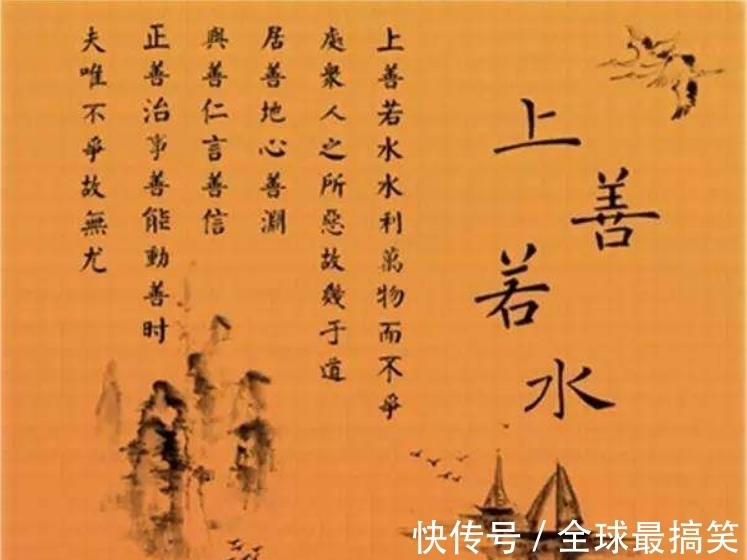 上善若水
上善若水水利萬物而不爭
處衆人之所惡故幾于道
居善地心善淵
與善仁言善信
正善治事善能動善时
夫唯不爭故無尤
快传号 / 全球最搞笑